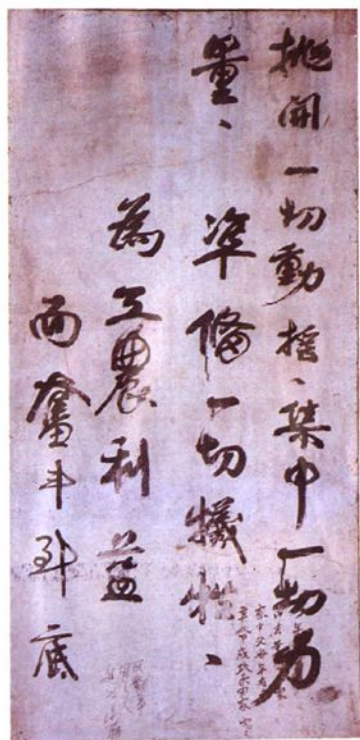 抛開一切動搖、集中一切力
量、準備一切犧牲、
為工農利益
而奮斗到底